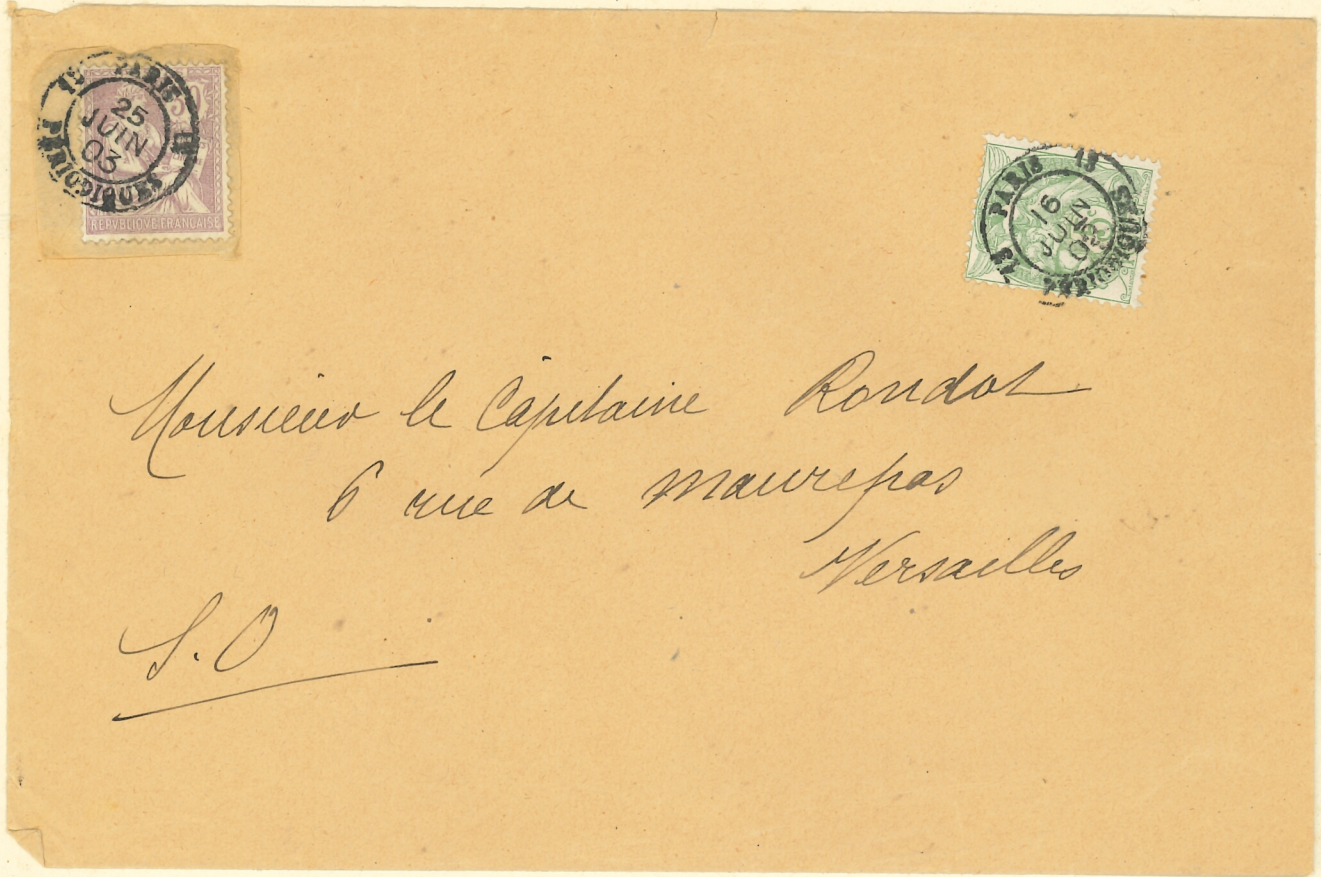 15 PARIS 15
25
JUIN
03
PÉRIODIQUES
30
REPVBLIQVE FRANÇAISE
PARIS
16
JUIN
03
PÉRIODIQUES
Monsieur le Capitaine Rondot
6 rue de Maurepas
Versailles
S. O